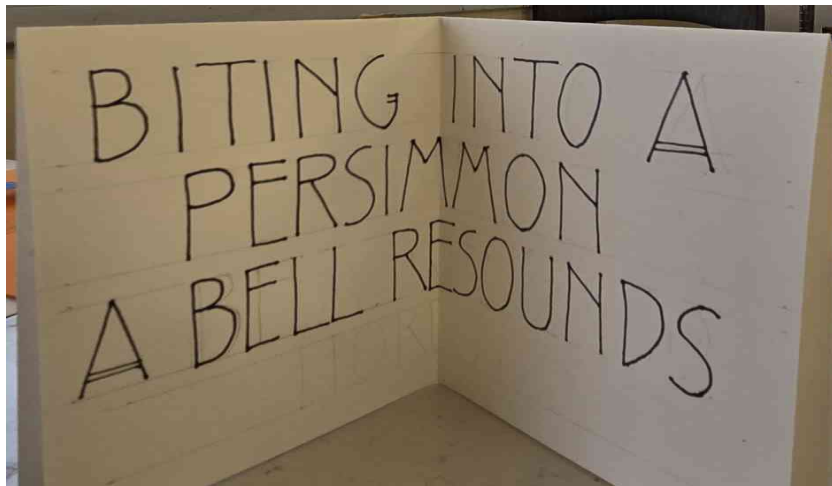 BITING INTO A
PERSIMMON
A BELL RESOUNDS